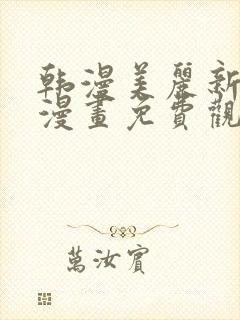 韩漫美麗新
漫畫免費觀
萬汝賓